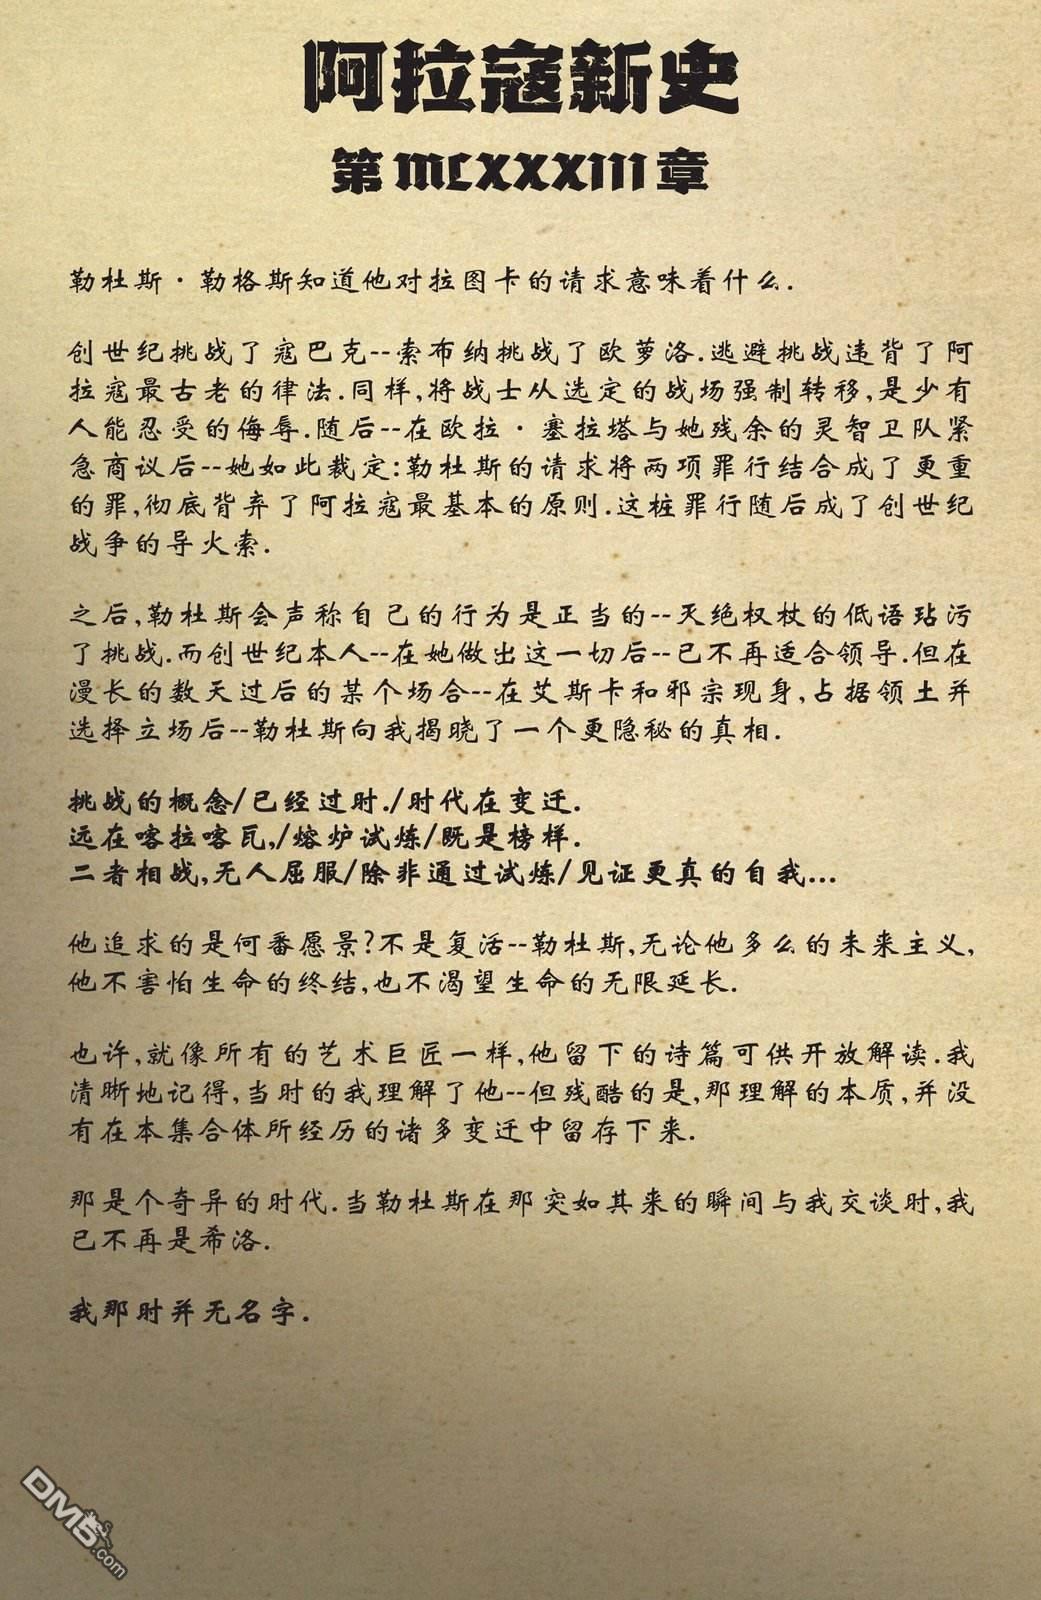 阿拉寇新史
第MCXXXIII章
勒杜斯·勒格斯知道他对拉图卡的请求意味着什么.
创世纪挑战了寇巴克--索布纳挑战了欧萝洛.逃避挑战违背了阿
拉寇最古老的律法.同样,将战士从选定的战场强制转移,是少有
人能忍受的侮辱.随后--在欧拉·塞拉塔与她残余的灵智卫队紧
急商议后--她如此裁定:勒杜斯的请求将两项罪行结合成了更重
的罪,彻底背弃了阿拉寇最基本的原则.这桩罪行随后成了创世纪
战争的导火索.
之后,勒杜斯会声称自己的行为是正当的--灭绝权杖的低语玷污
了挑战.而创世纪本人--在她做出这一切后--已不再适合领导.但在
漫长的数天过后的某个场合--在艾斯卡和邪宗现身,占据领土并
选择立场后--勒杜斯向我揭晓了一个更隐秘的真相.
挑战的概念/已经过时./时代在变迁.
远在喀拉喀瓦,/熔炉试炼/既是榜样.
二者相战,无人屈服/除非通过试炼/见证更真的自我...
他追求的是何番愿景?不是复活--勒杜斯,无论他多么的未来主义,
他不害怕生命的终结,也不渴望生命的无限延长.
也许,就像所有的艺术巨匠一样,他留下的诗篇可供开放解读.我
清晰地记得,当时的我理解了他--但残酷的是,那理解的本质,并没
有在本集合体所经历的诸多变迁中留存下来.
那是个奇异的时代.当勒杜斯在那突如其来的瞬间与我交谈时,我
已不再是希洛.
我那时并无名字.
DM5.com